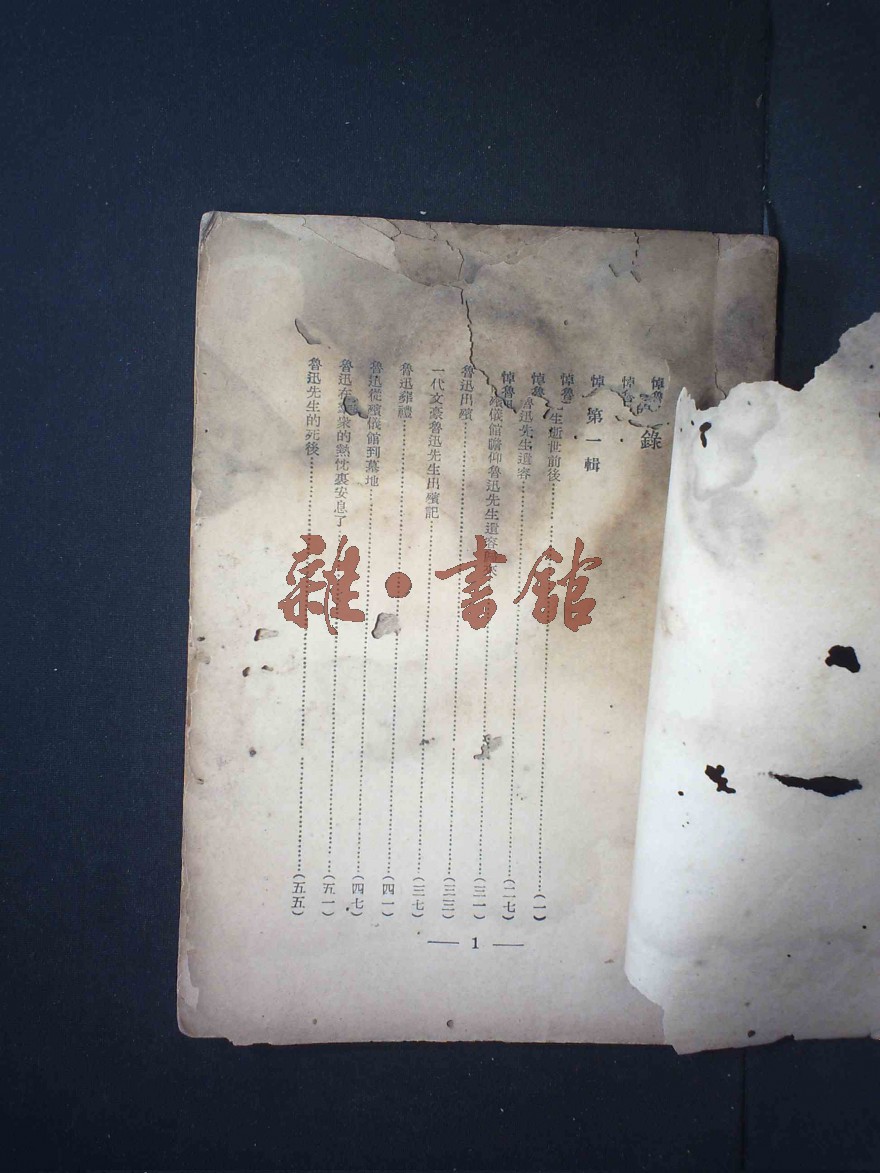 錄
第一輯
生逝世前後（一）
魯迅先生遺容（二七）
殯儀館瞻仰魯迅先生遺容（三一）
魯迅出殯（三三）
一代文豪魯迅先生出殯記（三七）
魯迅葬禮（四一）
魯迅從殯儀館到墓地（四七）
魯迅在衆的熱忱裏安息了（五一）
魯迅先生的死後（五五）
— 1 —
悼魯
悼魯
悼
悼魯
悼魯
悼魯
雜·書館